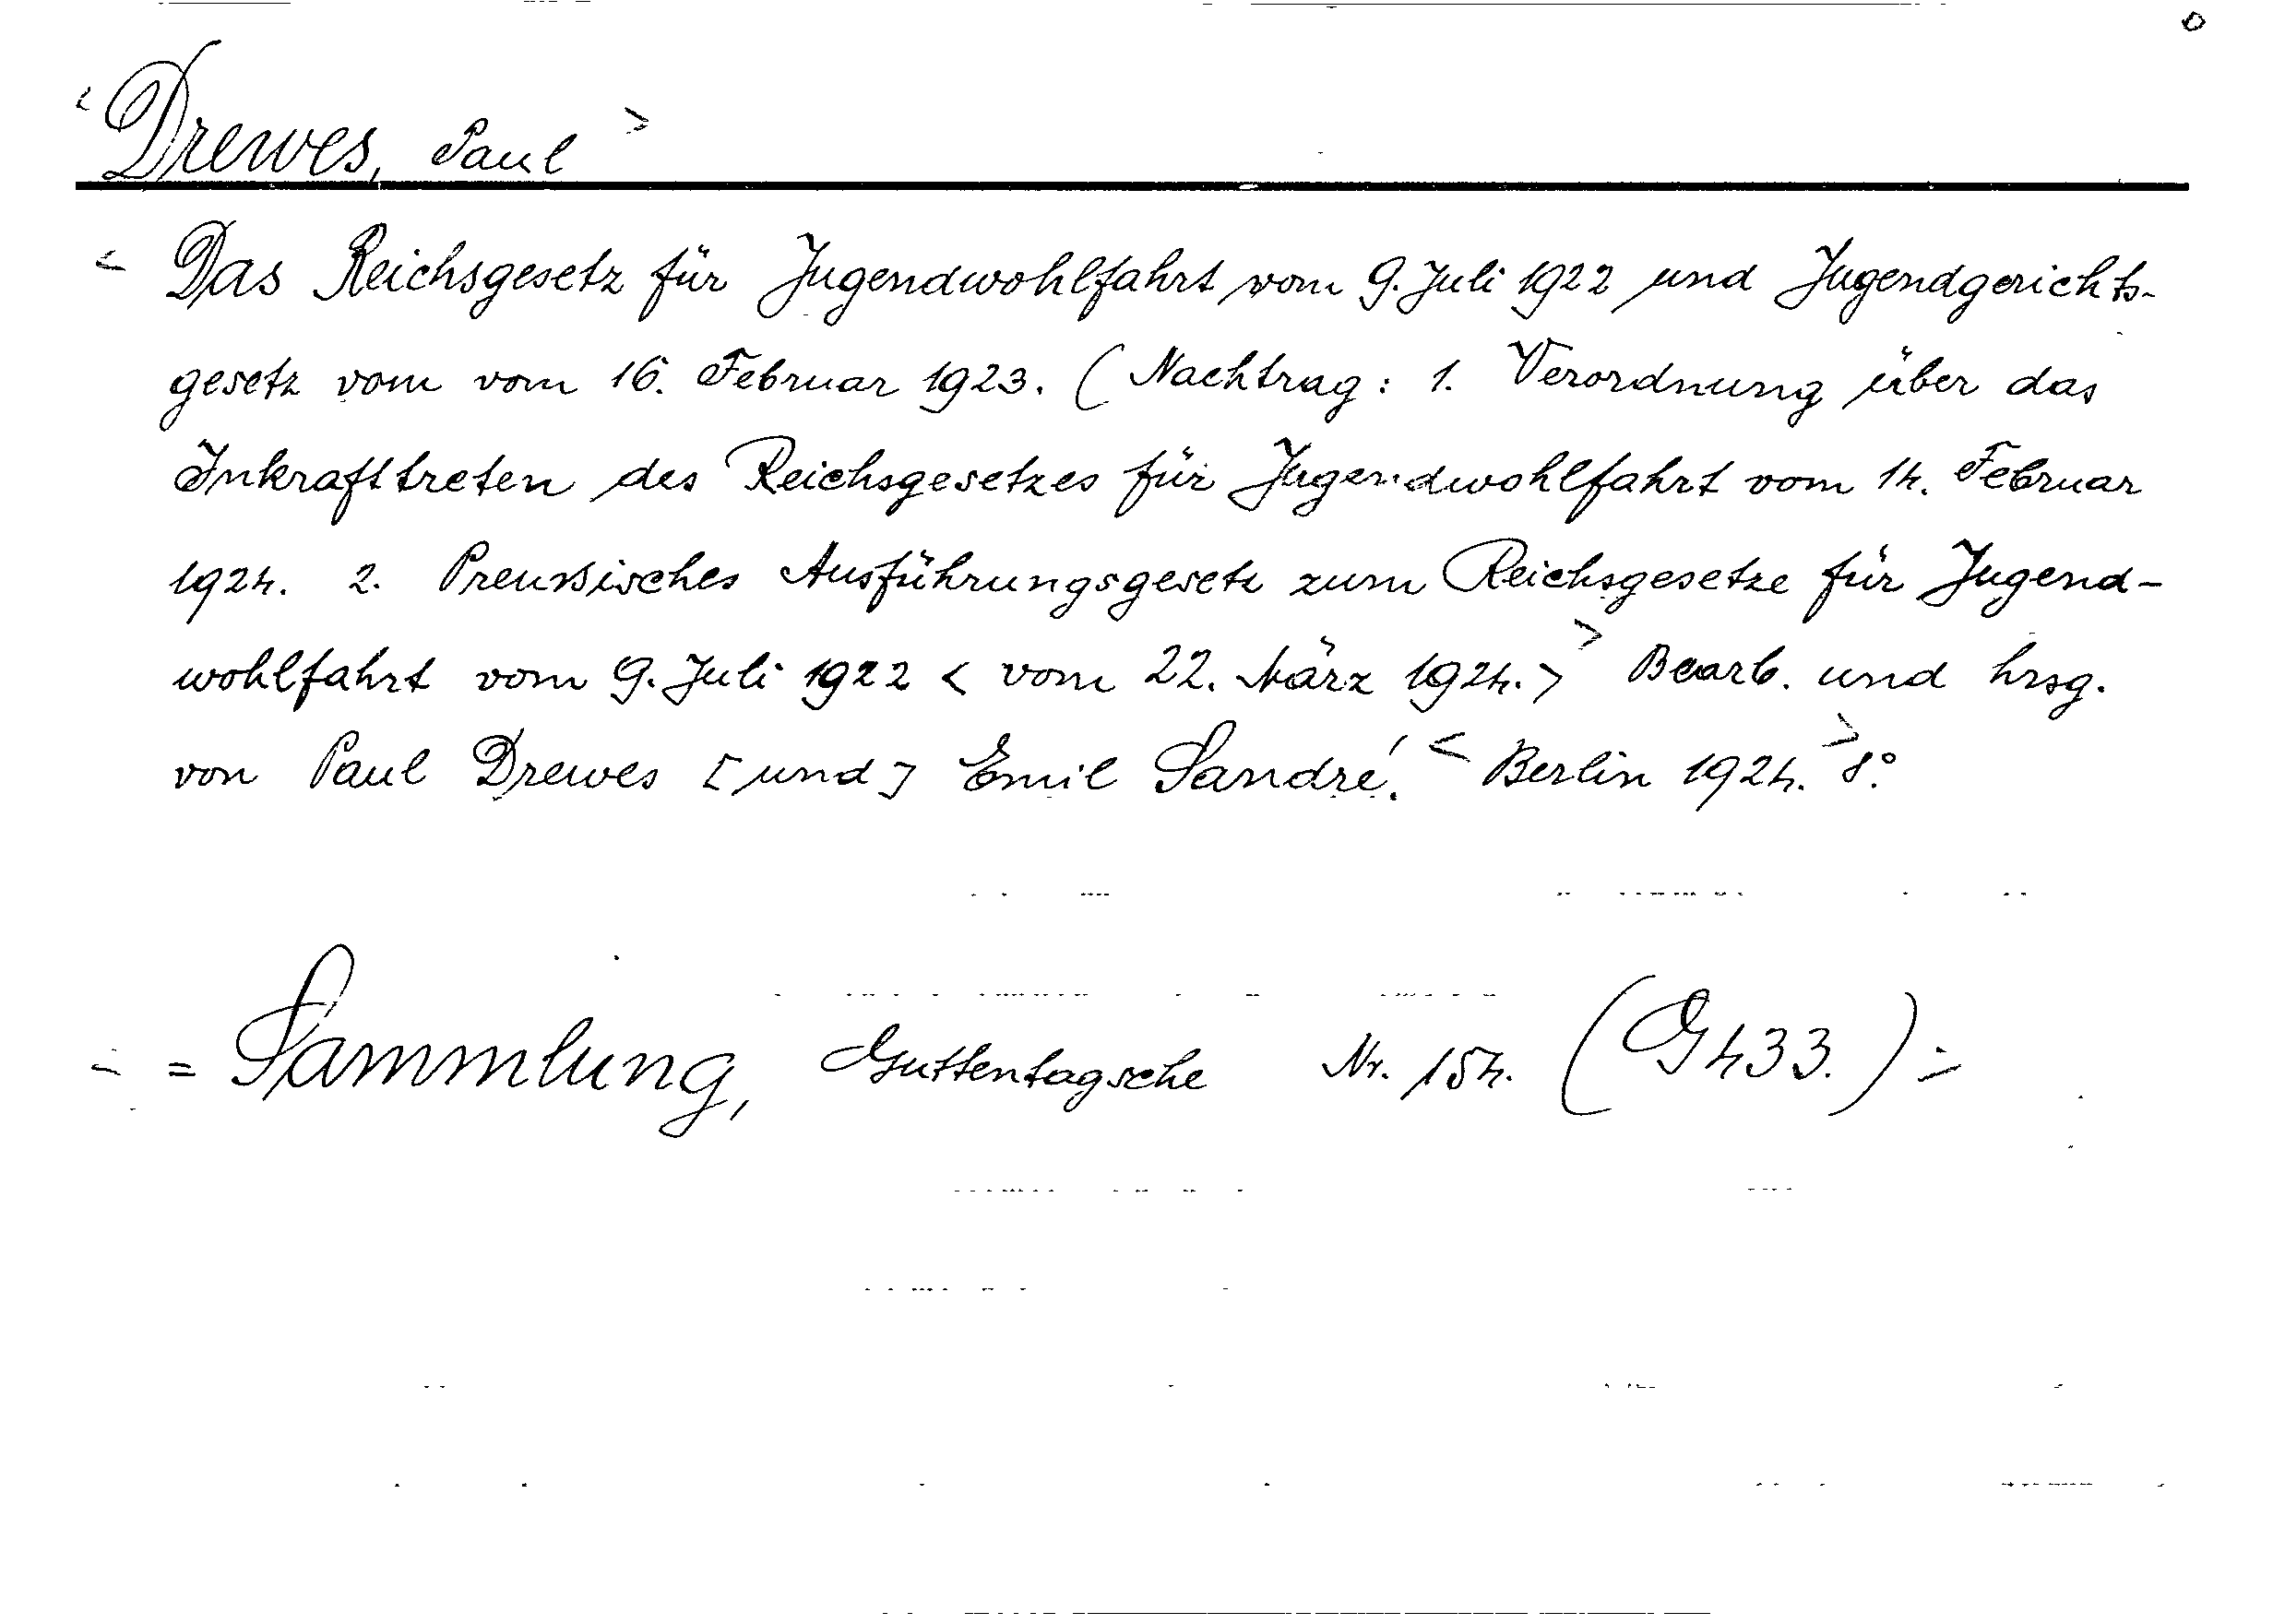 < Drewes, Paul >
< Das Reichsgesetz für Jugendwohlfahrt vom 9. Juli 1922 und Jugendgerichts-
gesetz vom vom 16. Februar 1923. (Nachtrag: 1. Verordnung über das
Inkrafttreten des Reichsgesetzes für Jugendwohlfahrt vom 14. Februar
1924. 2. Preussisches Ausführungsgesetz zum Reichsgesetze für Jugend-
wohlfahrt vom 9. Juli 1922 < vom 22. März 1924. > > Bearb. und hrsg.
von Paul Drewes [und] Emil Sandré. < Berlin 1924. > 8°.
= Sammlung, Guttentagsche Nr. 154. (G 433.) =